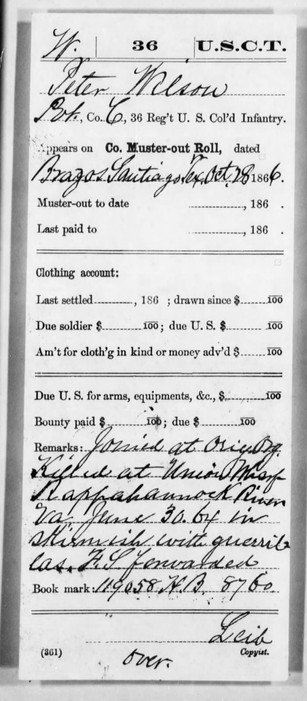 W. | 36 | U.S.C.T.
Peter Wilson
Pvt., Co. C, 36 Reg't U. S. Col'd Infantry.
Appears on Co. Muster-out Roll, dated
Brazos Santiago Tex Oct. 28 1866.
Muster-out to date , 186 .
Last paid to , 186 .
Clothing account:
Last settled , 186 ; drawn since $ 100
Due soldier $ 100; due U. S. $ 100
Am't for cloth'g in kind or money adv'd $ 100
Due U. S. for arms, equipments, &c., $ 100
Bounty paid $ 100; due $ 100
Remarks: Joined at Orig Org
Killed at Union Wharf
Rappahannock River
Va. June 30. 64 in
skirmish with gueril-
las. F. S forwarded
Book mark: 119058 H.B. 8760
Leib
(361) Copyist.
over.